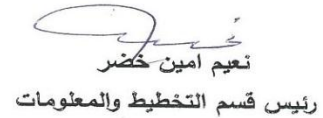 نعيم امين خضر
رئيس قسم التخطيط والمعلومات